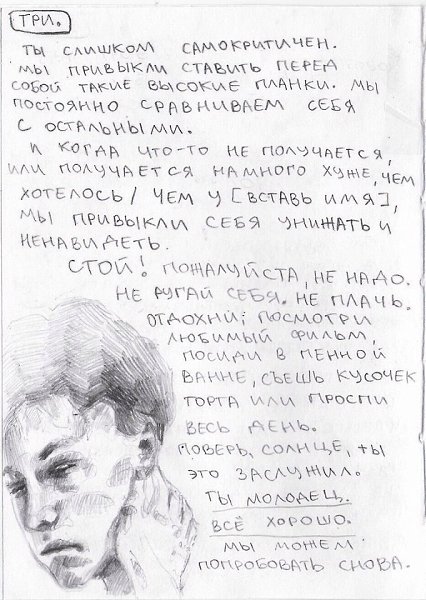 ТРИ.
ТЫ СЛИШКОМ САМОКРИТИЧЕН.
МЫ ПРИВЫКЛИ СТАВИТЬ ПЕРЕД
СОБОЙ ТАКИЕ ВЫСОКИЕ ПЛАНКИ. МЫ
ПОСТОЯННО СРАВНИВАЕМ СЕБЯ
С ОСТАЛЬНЫМИ.
И КОГДА ЧТО-ТО НЕ ПОЛУЧАЕТСЯ,
ИЛИ ПОЛУЧАЕТСЯ НАМНОГО ХУЖЕ, ЧЕМ
ХОТЕЛОСЬ / ЧЕМ У [ВСТАВЬ ИМЯ],
МЫ ПРИВЫКЛИ СЕБЯ УНИЖАТЬ И
НЕНАВИДЕТЬ.
СТОЙ! ПОЖАЛУЙСТА, НЕ НАДО.
НЕ РУГАЙ СЕБЯ. НЕ ПЛАЧЬ.
ОТДОХНИ; ПОСМОТРИ
ЛЮБИМЫЙ ФИЛЬМ,
ПОСИДИ В ПЕННОЙ
ВАННЕ, СЪЕШЬ КУСОЧЕК
ТОРТА ИЛИ ПРОСПИ
ВЕСЬ ДЕНЬ.
ПОВЕРЬ, СОЛНЦЕ, ТЫ
ЭТО ЗАСЛУЖИЛ.
ТЫ МОЛОДЕЦ.
ВСЁ ХОРОШО.
МЫ МОЖЕМ
ПОПРОБОВАТЬ СНОВА.